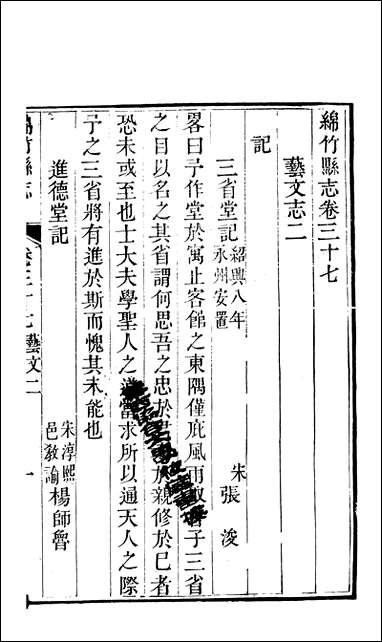 綿竹縣志卷三十七
藝文志二
記
三省堂記 紹興八年 永州安置 宋 張浚
畧曰予作堂於寓止客館之東隅僅庇風雨 子三省
之目以名之其省謂何思吾之忠於 於親修於己者
恐未或至也士大夫學聖人之道當求所以通天人之際
予之三省將有進於斯而愧其未能也
進德堂記 宋淳熙 邑教諭 楊師魯
綿竹縣志 卷三十七 藝文二 一